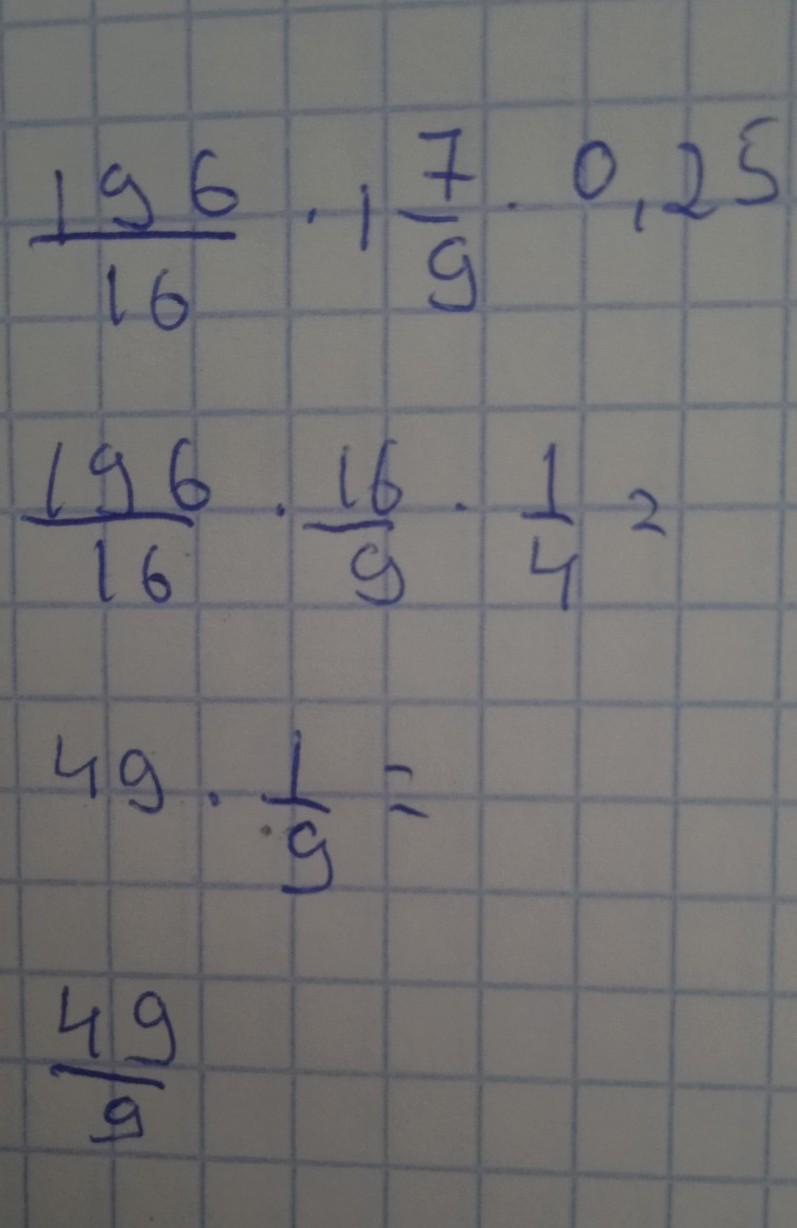 196/16 · 1 7/9 · 0,25
196/16 · 16/9 · 1/4 =
49 · 1/9 =
49/9